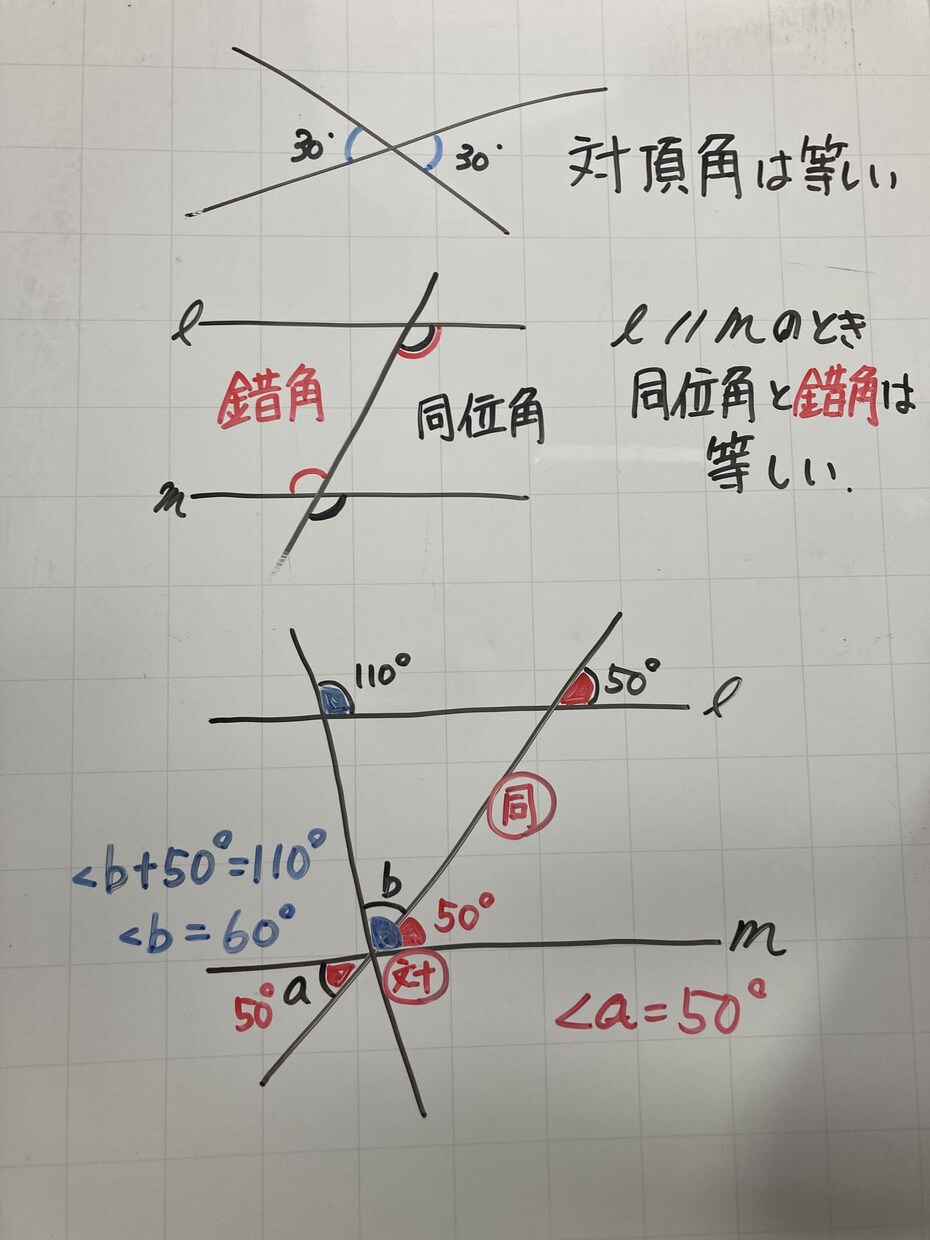 30° 30° 対頂角は等しい
l
l // m のとき
錯角 同位角
同位角と錯角は
等しい.
m
110° 50° l
同
<b+50°=110°
b
<b=60°
50° m
50° a 対 <a=50°